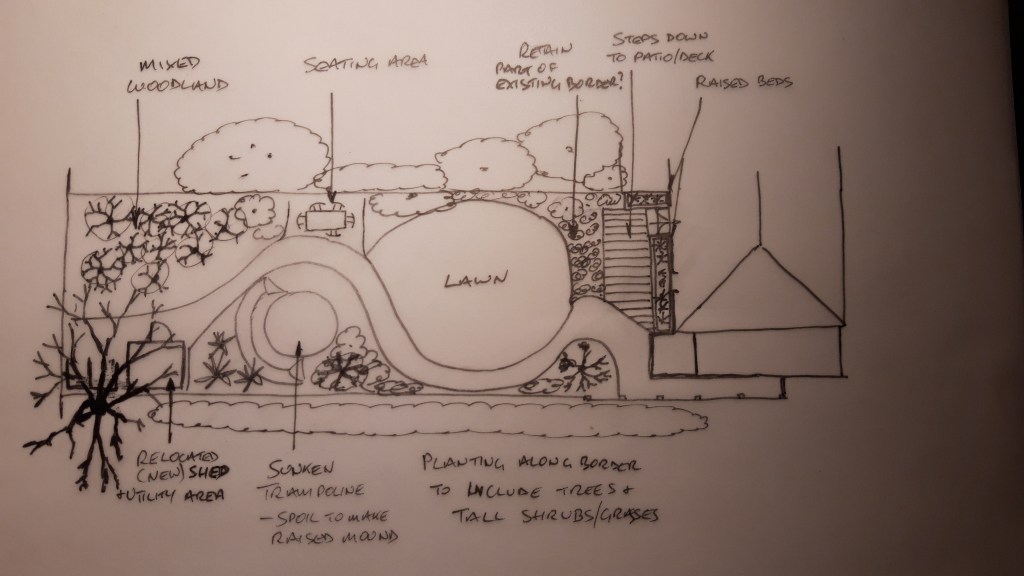 MIXED
WOODLAND
SEATING AREA
RETAIN
PART OF
EXISTING BORDER?
STEPS DOWN
TO PATIO/DECK
RAISED BEDS
LAWN
RELOCATED
(NEW) SHED
+ UTILITY AREA
SUNKEN
TRAMPOLINE
- SPOIL TO MAKE
RAISED MOUND
PLANTING ALONG BORDER
TO INCLUDE TREES +
TALL SHRUBS/GRASSES